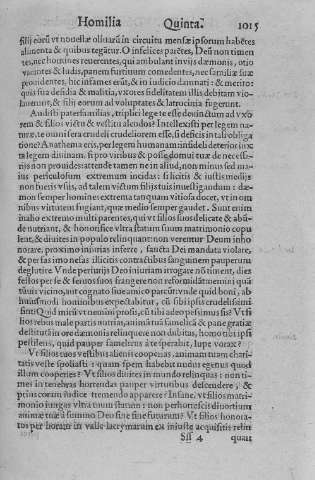 Homilia Quinta. 1015
filij eorũ vt nouellæ oliuarũ in circuitu mensæ ipsorum habẽtes
alimenta & quibus tegãtur. O infelices parẽtes, Deũ non timen
tes, nec homines reuerentes, qui ambulant in vijs dæmonis, otio
vacantes & ludis, panem furtiuum comedentes, nec familiæ suæ
prouidentes, hic infames erũt, & in iudicio damnati: & merito:
quis sua desidia & malitia, vxores fidelitatem illis debitam vio-
larunt, & filij eorum ad voluptates & latrocinia fugerunt.
Audisti paterfamilias, triplici lege te esse deuinctum ad vxo
rem & filios victu & vestitu alendos? Intellexisti per legem na-
turæ, te omni fera crudeli crudeliorem esse, si deficis in tali obliga
tione? Anathema eris, per legem humanam infideli deterior iux
ta legem diuinam. Si pro viribus & possedomui tuæ de necessa-
rijs non prouides: attende tamen ne in aliud, non minus sed ma-
ius periculosum extremum incidas: si licitis & iustis medijs
non fueris vsus, ad talem victum filijs tuis inuestigandum: dæ-
mon semper homines extrema tanquam vitiosa docet, vt in om
nibus virtutem fugiant, quæ medio semper gaudet. Sunt enim
in alio extremo multi parentes, qui vt filios suos delicate & abũ-
de nutriant, & honorifice vltra statum suum matrimonio copu
lent, & diuites in populo relinquant: non verentur Deum inho
norare, proximo iniurias inferre, sancta Dei mandata violare,
& per fas imo nefas illicitis contractibus sanguinem pauperum
deglutire. Vnde periurijs Deo iniuriam irrogare nõ timent, dies
festos per se & seruos suos frangere non reformidãt: nemini quã
tũuis vicino, aut cognato siue amico parcũt: vnde quid boni, ab
huiusmodi hominibus expectabitur, cũ sibi ipsis crudelissimi
sint? Quid mirũ vt nemini prosis, cũ tibi adeo pessimus sis? Vt fi
lios rebus male partis nutrias, animã tuã famelicã & pane gratiæ
destitutã in ore dæmonis relinquere non dubitas, homo tibi ipsi
pestilens, quid pauper famelicus à te sperabit, lupe vorax?
Vt filios tuos vestibus alienis cooperias, animam tuam chari-
tatis veste spoliasti: quam spem habebit nudus egenus quod
illum cooperies? Vt filios diuites in mundo relinquas: non ti-
mes in tenebras horrendas pauper virtutibus descendere, &
prius coram iudice tremendo apparere? Insane, vt filios matri-
monio iungas vltra tuum statum: non perhorrescis diuortium
animæ tuæ à summo Deo sine fine futurum? Vt filios honora-
tos per hortari in valle lacrymarum ex iniuste acquisitis relin
Sſſ 4 quas